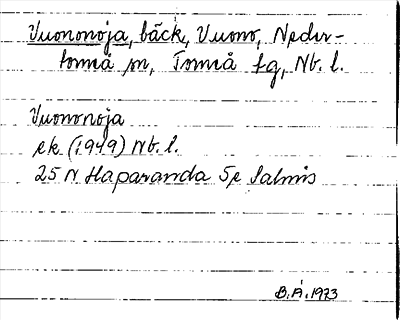 Vuononoja, bäck, Vuono, Neder-
torneå sn, Torneå tg, Nb. l.
Vuononoja
ek (1949) Nb. l.
25 N Haparanda 5e Salmis
B.Å. 1973